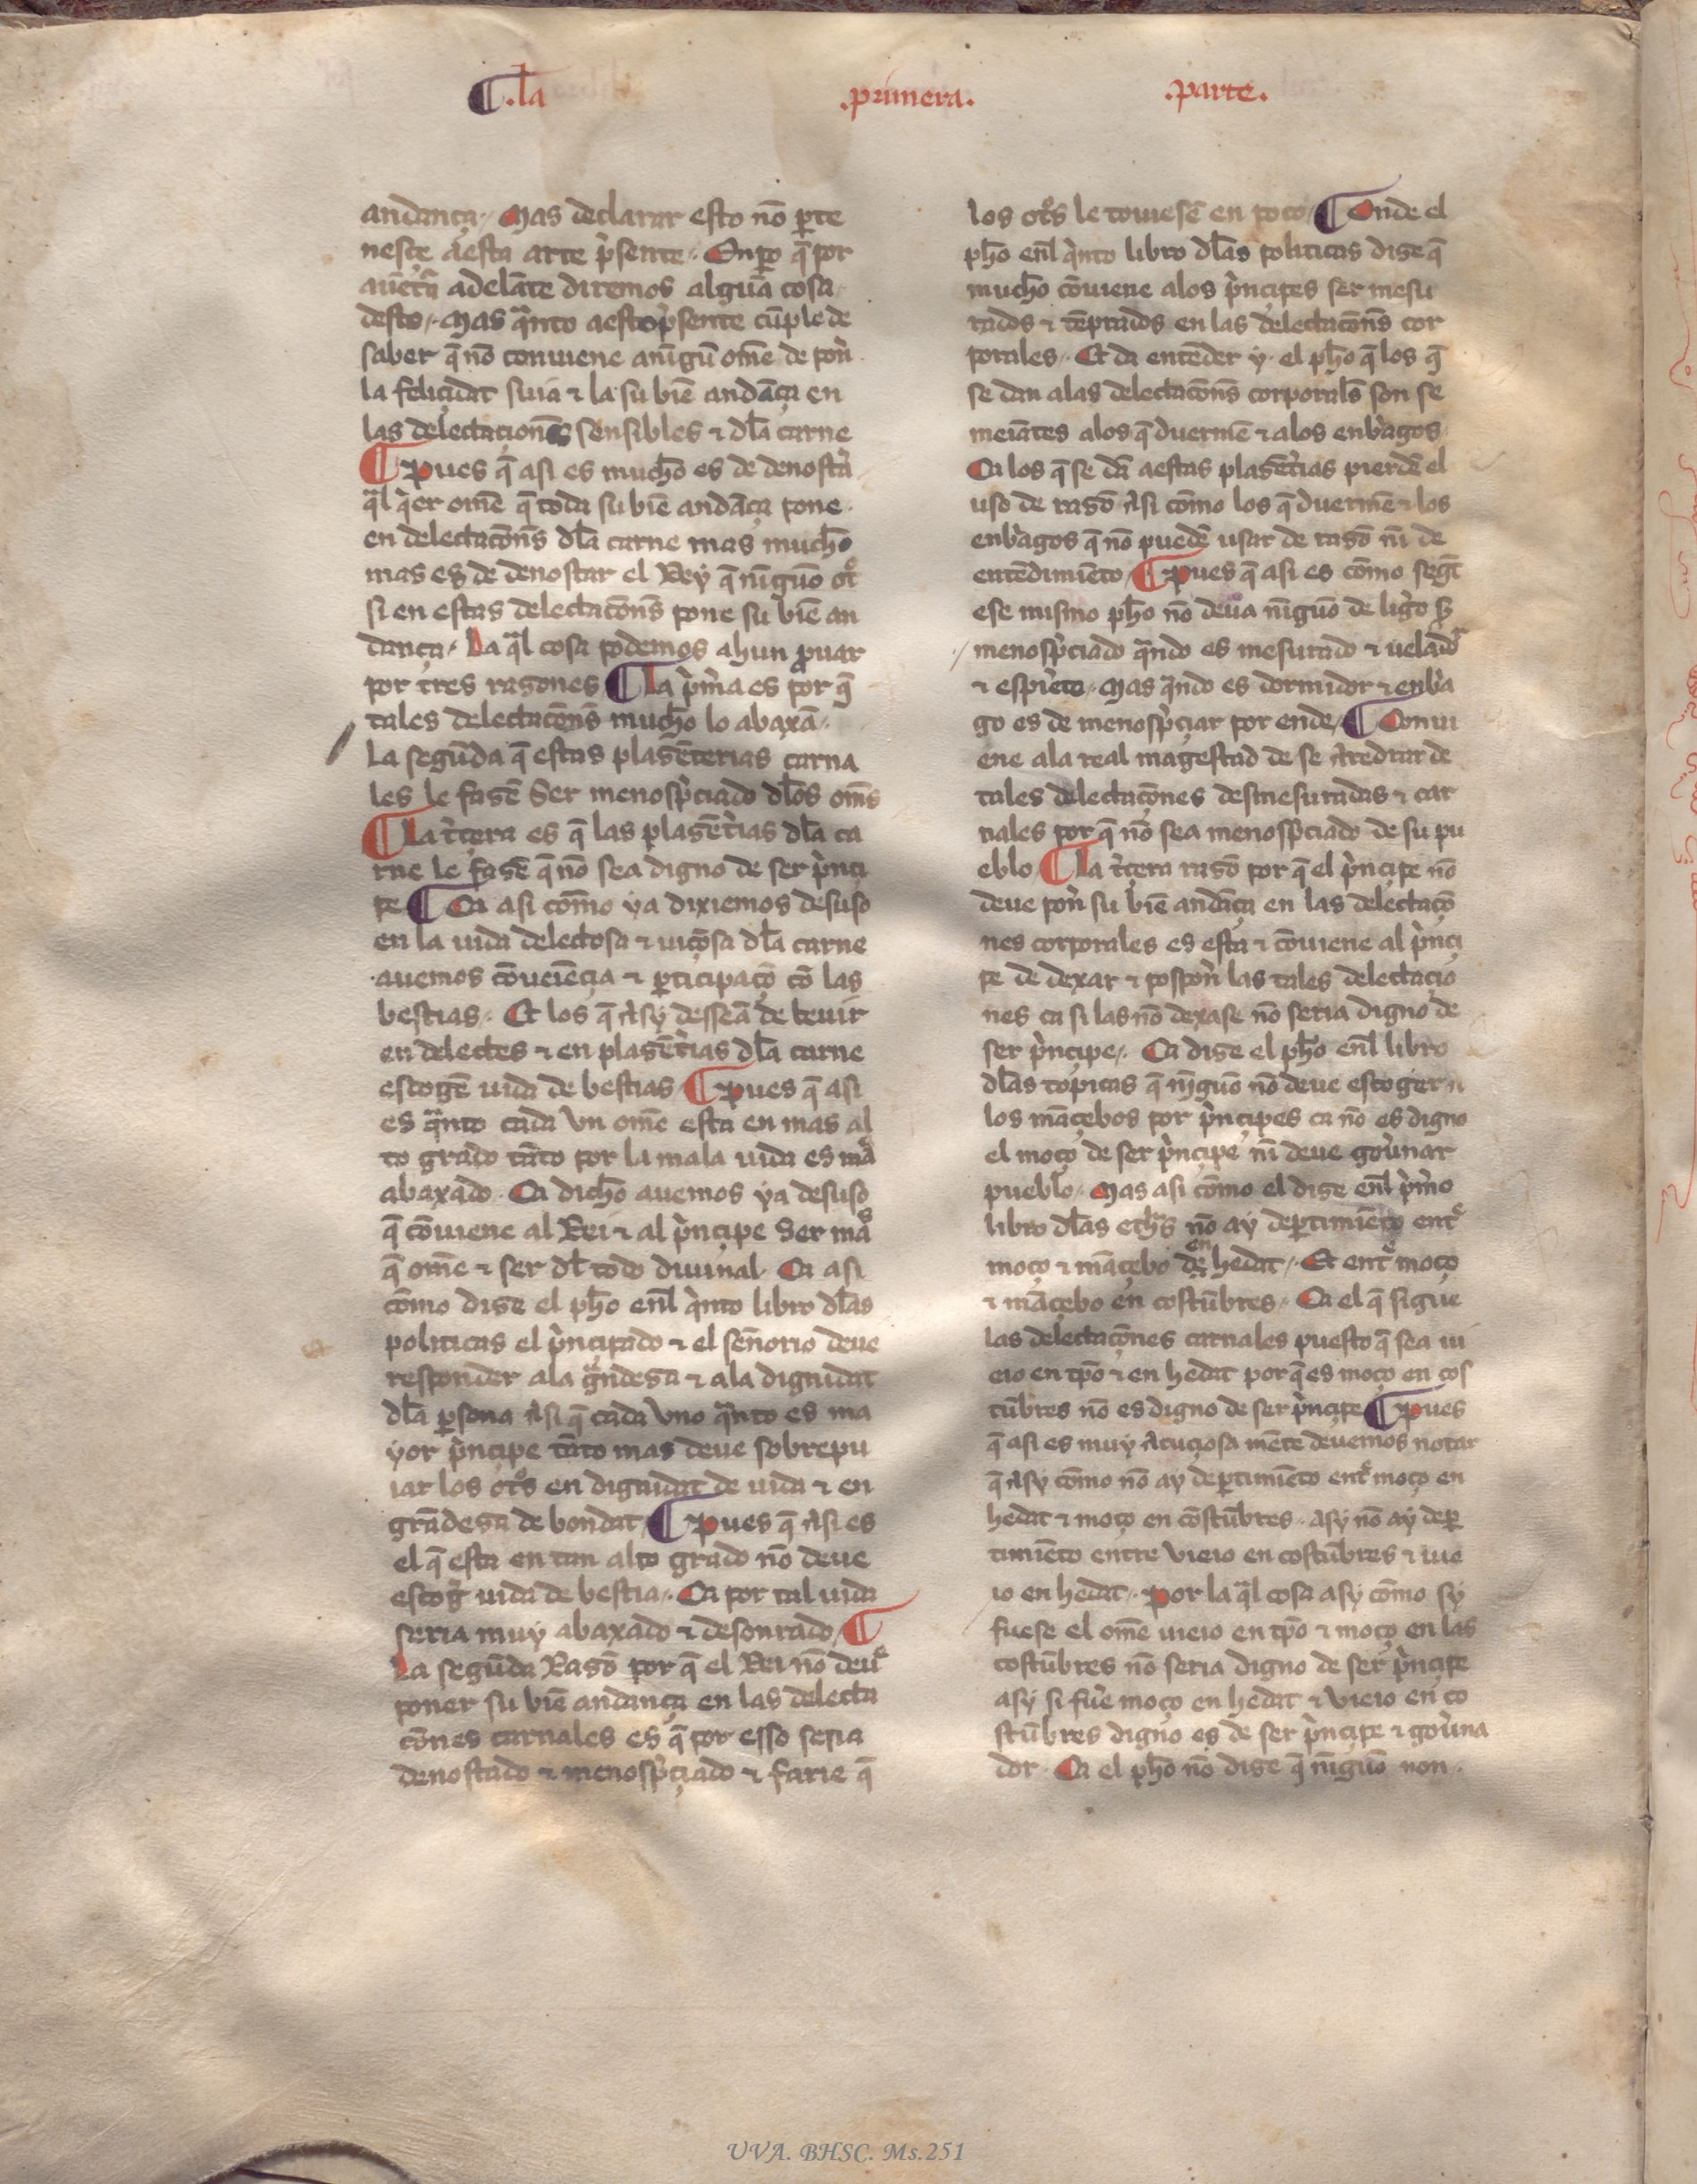 ¶ .la .primera. .parte.
andança. Mas declarar esto nō ꝑte
nesçe aesta arte p̀sente. Enꝑo q̄ por
auētȗa adelāte diremos algūa cosa
desto. Mas q̄nto aestop̀sente cūple de
saber q̄ nō conuiene anīgū om̄e de pon̄
la feliçidat suia ⁊ la su biē andāça en
las delectaciones sensibles ⁊ dl̄a carne
¶ pues q̄ asi es mucho es de denosta᷑
q̄l q̀er om̄e q̄ toda su biē andāça pone
en delectacōn̄s dl̄a carne mas mucho
mas es de denostar el Rey q̄ nīguō ot͛o
si en estas delectacōn̄s pone su biē an
dança. La q̄l cosa podemos ahun ꝓuar
por tres rasones ¶ La p̀m̄a es por q̄
tales delectacōn̄s mucho lo abaxā.
La segūda q̄ estas plasēterias carna
les le fasē Ser menosp̀ciado dl̄os om̄s
¶ La t̀çera es q̄ las plasēt̀ias dl̄a ca
rne le fasē q̄ nō sea digno de ser p̀nçi
pe ¶ Ca asi cōmo ya diximos desuso
en la uida delectosa ⁊ uiçosa dl̄a carne
auemos cōueiēçia ⁊ ꝑticipaçō cō las
bestias. Et los q̄ asy desseā de beuir
en delectes ⁊ en plasēt̀ias dl̄a carne
escogē uida de bestias ¶ pues q̄ asi
es q̄nto cada vn om̄e esta en mas al
to grado tāto por la mala uida es maˢ
abaxado. Ca dicho auemos ya desuso
q̄ cōuiene al Rei ⁊ al p̀nçipe Ser maˢ
q̄ om̄e ⁊ ser dl̄ todo diuinal. Ca asi
cōmo dise el ph̄o en̄l q̀nto libro dl̄as
politicas el p̀nçipado ⁊ el señorio deue
responder ala g̀ndesa ⁊ ala dignidat
dl̄a ꝑsona asi q̄ cada vno q̄nto es ma
yor p̀nçipe tāto mas deue sobrepu
iar los ot͛os en dignidat de uida ⁊ en
grādesa de bondat ¶ pues q̄ asi es
el q̄ esta en tan alto grado nō deue
escog᷑ uida de bestia. Ca por tal uida
seria muy abaxado ⁊ desonrado ¶
La segūda Rasō por q̄ el Rei nō deuᵉ
poner su biē andança en las delecta
cōnes carnales es q̄ por esso seria
denostado ⁊ menosp̀çiado ⁊ farie q̄
los ot͛os le touiesē en poco ¶ Onde el
ph̄o en̄l q̀nto libro dl̄as politicas dise q̄
mucho cōuiene alos p̀nçipes ser mesu
rados ⁊ tēprados en las delectacōn̄s cor
porales. Et da entēder y. el ph̄o q̄ los q̄
se dan alas delectacōn̄s corporals̄ son se
meiātes alos q̄ duermē ⁊ alos enb̀agos
Ca los q̄ se dā aestas plasēt̀ias pierdē el
uso de rasō asi cōmo los q̄ duermē ⁊ los
enb̀agos q̄ nō puedē usar de rasō nī de
entēdimiēto ¶ pues q̄ asi es cōmo segт̄
ese mismo ph̄o nō deua nīguō de lig̀o ẜ
menosp̀ciado q̄ndo es mesurado ⁊ ueladoʳ
⁊ espìerto. Mas q̄ndo es dormidor ⁊ enb̀a
go es de menosp̀çiar por ende ¶ Conui
ene ala real magestad de se aredrar de
tales delectaçōnes desmesuradas ⁊ car
nales por q̄ nō sea menosp̀ciado de su pu
eblo ¶ La t̀çera rasō por q̄ el p̀nçipe nō
deue pon̄ su biē andāça en las delectaçō
nes corporales es esta ⁊ cōuiene al p̀nçi
pe de dexar ⁊ pospon̄ las tales delectaçio
nes ca si las nō dexase nō seria digno de
ser p̀nçipe. Ca dise el ph̄o en̄l libro
dl̄as topicas q̄ nīguō nō deue escoger a
los māçebos por p̀nçipes ca nō es digno
el moço de ser p̀nçipe nī deue gou̇nar
pueblo. Mas asi cōmo el dise en̄l p̀m̄o
libro dl̄as eth̄s nō ay deꝑtimiēto entᵉ
moço ⁊ māçebo de en hedat. Et entᵉ moço
⁊ māçebo en costūbres. Ca el q̄ sigue
las delectaçōnes carnales puesto q̄ sea ui
eio en tp̄o ⁊ en hedat por q̄ es moço en cos
tūbres nō es digno de ser p̀nçipe ¶ pues
q̄ asi es muy acuçiosa mēte deuemos notar
q̄ asy cōmo nō ay deꝑtimiēto entᵉ moço en
hedat ⁊ moço en cōstūbres. asy nō ay deꝑ
timiēto entre vieio en costūbres ⁊ uie
io en hedat. por la q̄l cosa asy cōmo sy
fuese el om̄e uieio en tp̄o ⁊ moço en las
costūbres nō seria digno de ser p̀nçipe
asy si fue᷑ moço en hedat ⁊ vieio en co
stūbres digno es de ser p̀nçipe ⁊ gou̇na
dor. Ca el ph̄o nō dise q̄ nīguō non
UVA. BHSC. Ms.251